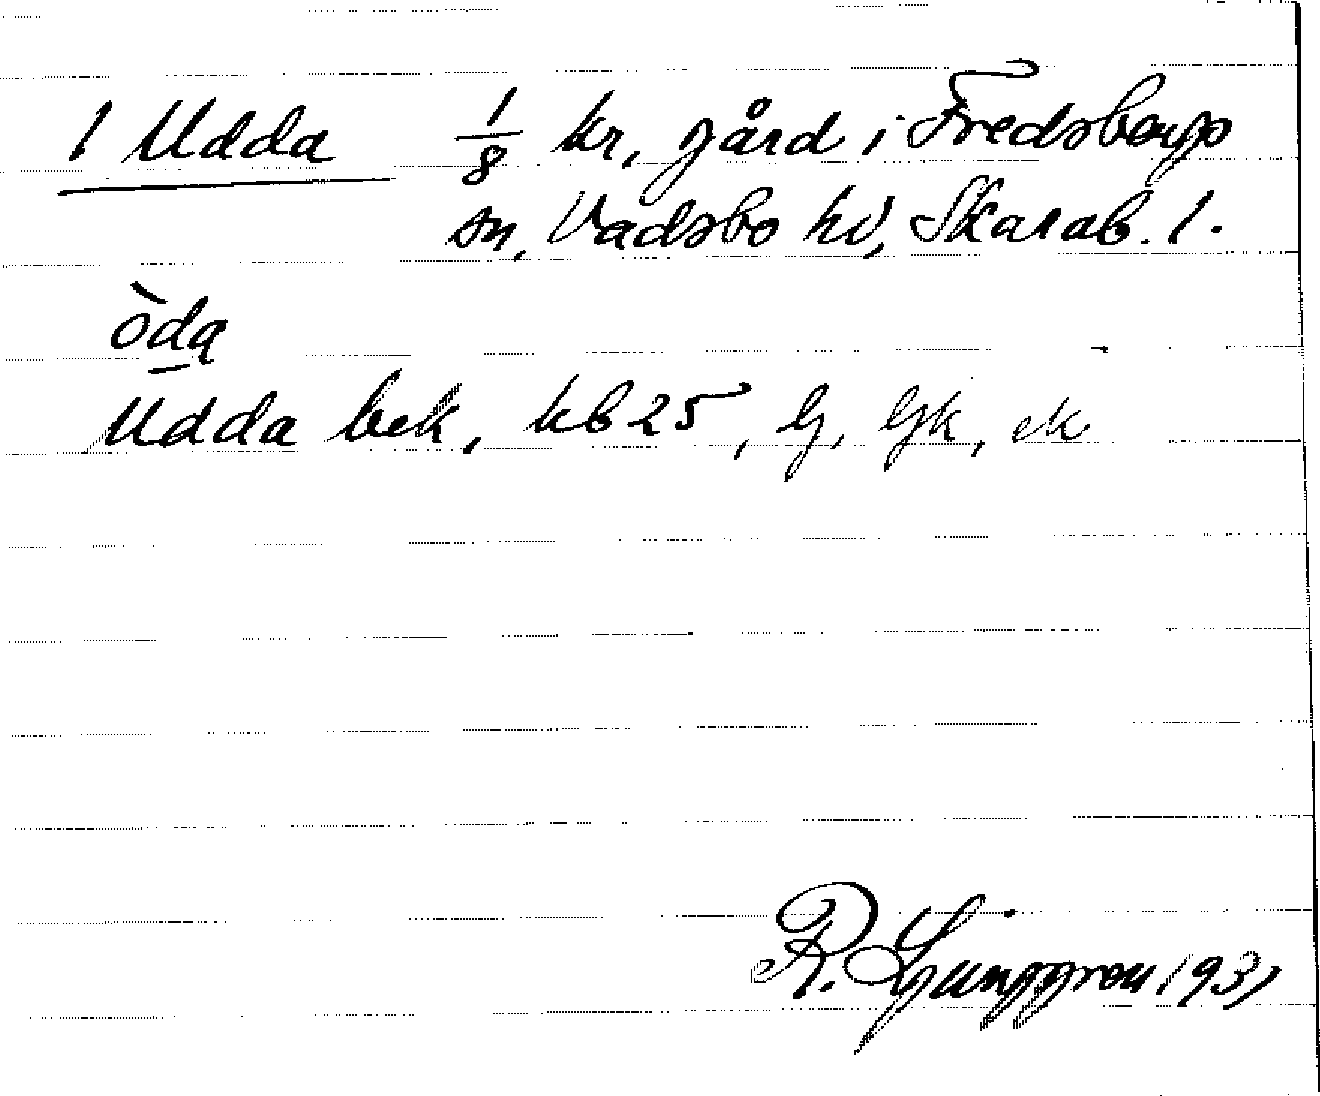 1 Udda 1/8 kr, gård i Fredsbergs
sn, Vadsbo hd, Skarab. l.
òdą
Udda bek, kb 25, lj, ljk, ek
R. Ljunggren 1931